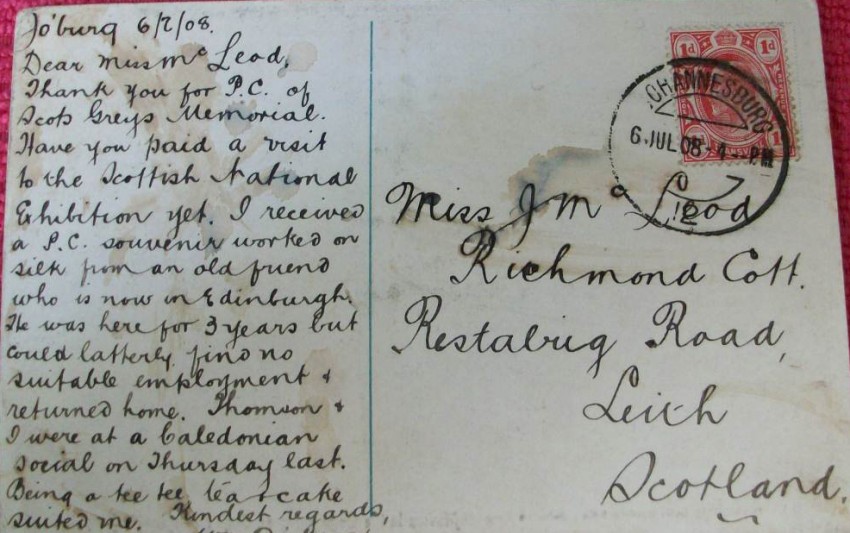 Jo'burg 6/7/08.
Dear Miss Mc Leod,
Thank you for P.C. of
Scots Greys Memorial.
Have you paid a visit
to the Scottish National
Exhibition yet. I received
a P.C. souvenir worked on
silk from an old friend
who is now in Edinburgh.
He was here for 3 years but
could latterly find no
suitable employment &
returned home. Thomson &
I were at a Caledonian
social on Thursday last.
Being a tee tee, tea & cake
suited me. Kindest regards,
1d 1d
JOHANNESBURG
6 JUL 08 - 4 - PM
Miss J Mc Leod
Richmond Cott.
Restalrig Road,
Leith
Scotland.